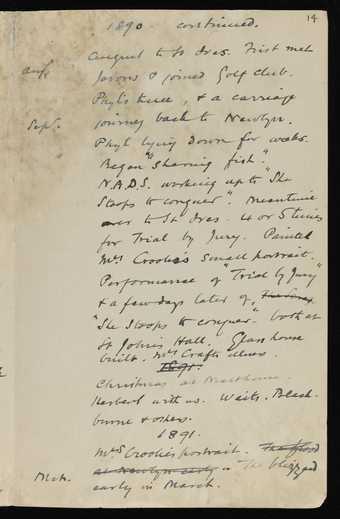 14
1890 continued.
Aug. August to St Ives. First met
Jevons & joined Golf Club.
Phyl's knee, & a carriage
Sept. journey back to Newlyn.
Phyl lying down for weeks.
Began "Sharing fish".
N.A.D.S. working up to "She
Stoops to conquer". Meantime
over to St Ives 4 or 5 times
for Trial by Jury. Painted
Mrs Crooke's small portrait.
Performance of "Trial by Jury"
& a few days later of,
"She Stoops to conquer" both at
St John's Hall. Glass house
built. Mrs Crafts illness.
1891.
Christmas at
Herbert with us. Waits. Black-
burne & others.
1891.
Mrs Crooke's portrait. The flood
at Newlyn early in The blizzard
Mch. early in March.